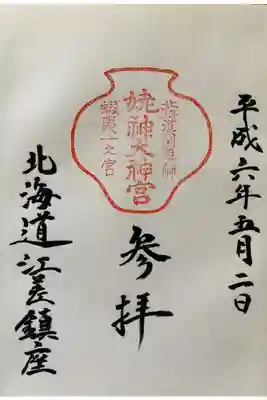 平成六年五月二日
姥神大神宮
蝦夷一之宮
参拝
北海道江差鎮座